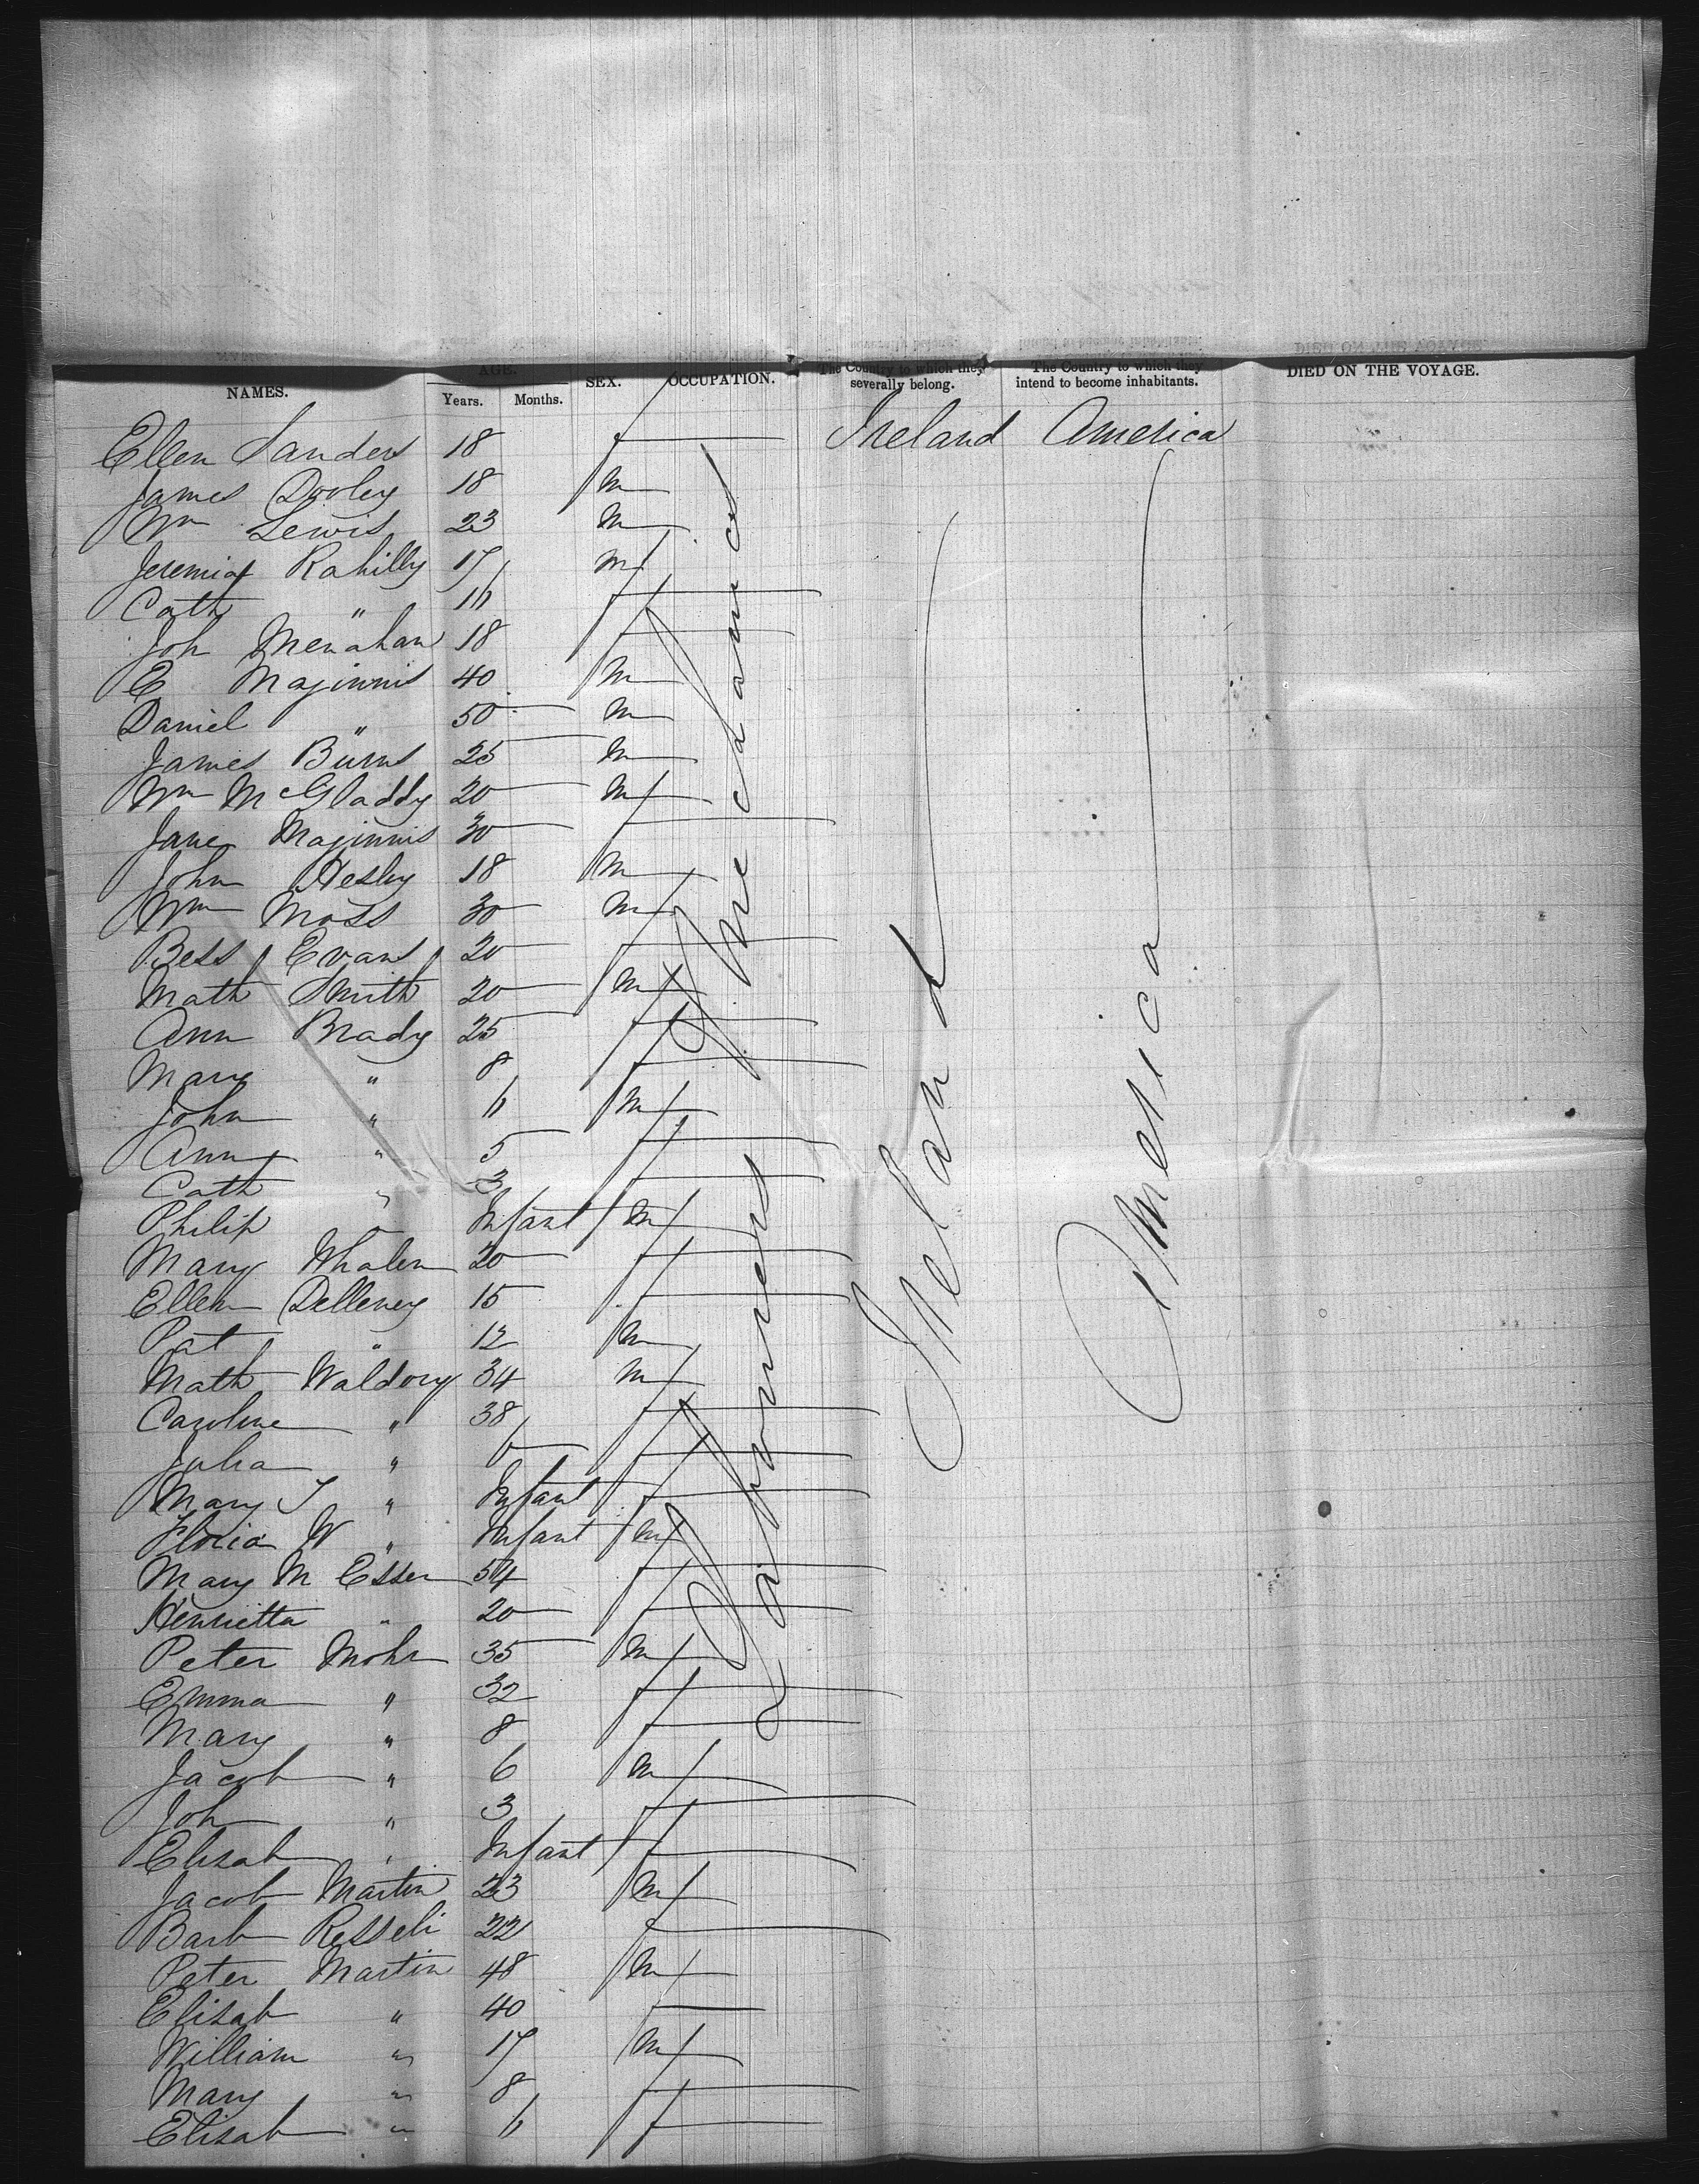 NAMES. AGE. SEX. OCCUPATION. The Country to which they severally belong. The Country to which they intend to become inhabitants. DIED ON THE VOYAGE.
Years. Months.
Ellen Sanders 18 f Ireland America
James Dooley 18 m
Wm Lewis 23 m
Jeremia Rahilly 17 m
Cath " f
Joh Menahan 18 f
E Maginnis 40 m
Daniel " 50 m
James Burns 25 m
Wm McGladdy 20 m
Jane Maginnis 30 f
John Hesley 18 m
Wm Moss 30 m
Bess Evans 20 f
Math Smith 20 m
Ann Brady 25 f
Mary " 8 f
John " 6 m
Ann " 5 f
Cath " 3 f
Philip " Infant m
Mary Whalen 20 f
Ellen Delleney 15 f
Pat " 12 m
Math Waldory 34 m
Caroline " 38 f
Julia " 6 f
Mary J " Infant f
Floria W " Infant m
Mary M Esser 54 f
Henrietta " 20 f
Peter Mohr 35 m
Emma " 32 f
Mary " 8 f
Jacob " 6 m
Joh " 3 f
Elisab " Infant f
Jacob Martin 23 m
Barb Resseli 22 f
Peter Martin 48 m
Elisab " 40 f
William " 17 m
Mary " 8 f
Elisab " 6 f
Laborers &
Mechanics
Ireland
America